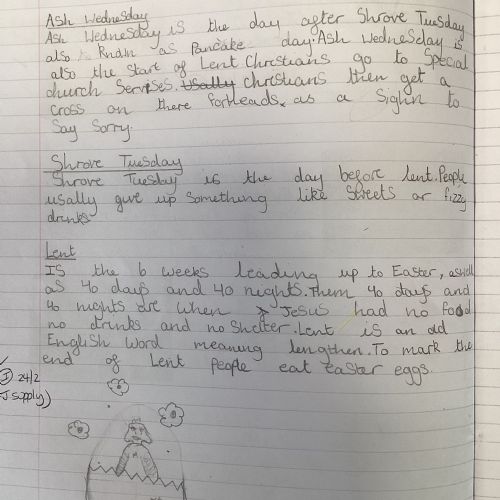 Ash Wednesday
Ash Wednesday is the day after Shrove Tuesday
also kndn as Pancake day. Ash Wednesday is
also the start of Lent Christians go to special
church Servises. Usally christians then get a
cross on there forheads. as a sighn to
Say Sorry.
Shrove Tuesday
Shrove Tuesday is the day before lent. People
usally give up something like Sweets or fizzy
drinks
Lent
IS the 6 weeks leading up to Easter, aswell
as 40 days and 40 nights. Them 40 days and
40 nights are when Jesus had no food
no drinks and no shelter. Lent is an old
English word meaning lengthen. To mark the
end of Lent people eat easter eggs.
24/2
supply)